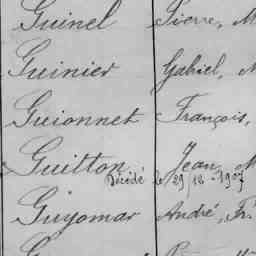 Guinel Pierre, M
Guinier Gabriel, M
Guionnet François,
Guitton Jean, M
Décédé le 29/12-1907
Guyomar André, Fr.